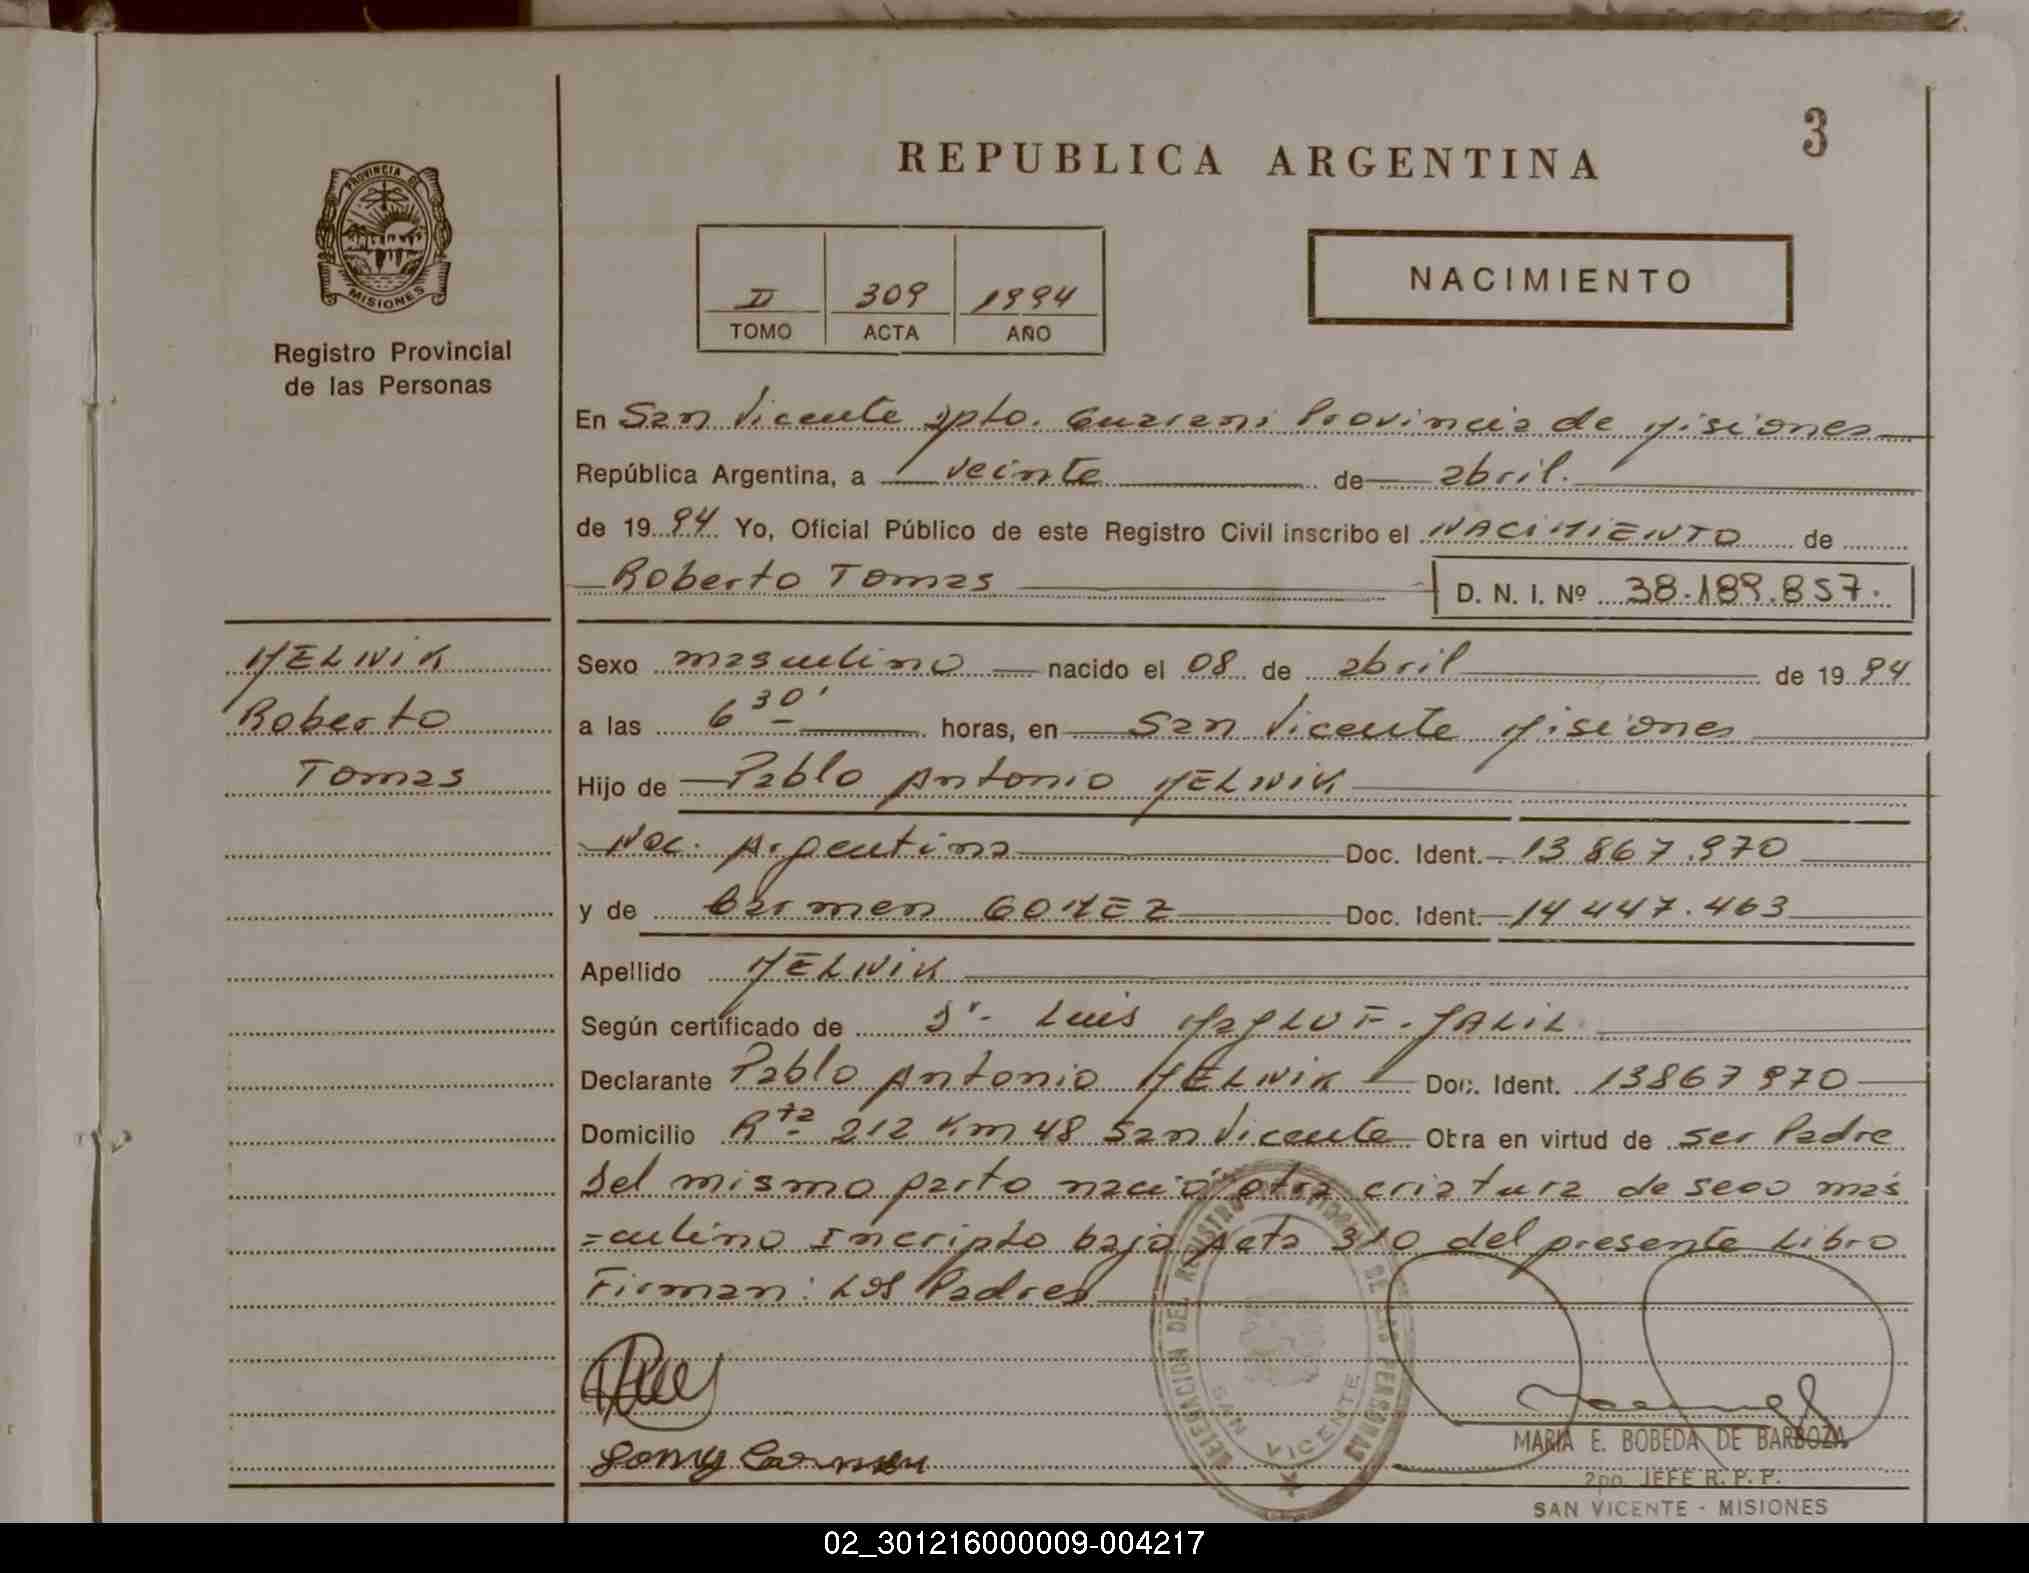 3
REPUBLICA ARGENTINA
PROVINCIA DE
MISIONES
Registro Provincial
de las Personas
II 309 1994
TOMO ACTA AÑO
NACIMIENTO
En San Vicente Dpto. Guarani Provincia de Misiones
República Argentina, a veinte de abril.
de 1994 Yo, Oficial Público de este Registro Civil inscribo el NACIMIENTO de
Roberto Tomas D. N. I. Nº 38.189.857.
MELNIK
Roberto
Tomas
Sexo masculino nacido el 08 de abril de 1994
a las 6 30' horas, en San Vicente Misiones
Hijo de Pablo Antonio MELNIK
Nac. Argentina Doc. Ident. 13 867.970
y de Carmen GOMEZ Doc. Ident. 14 447.463
Apellido MELNIK
Según certificado de Dr. Luis JALIL
Declarante Pablo Antonio MELNIK Doc. Ident. 13867970
Domicilio Rta 212 Km 48 San Vicente Obra en virtud de ser Padre
Del mismo parto nació otra criatura de sexo mas
=culino Incripto bajo Acta 310 del presente Libro
Firman: Los Padres
DELEGACION DEL REGISTRO DE LAS PERSONAS
SAN VICENTE
Gomez Carmen
MARIA E. BOBEDA DE BARBOZA
2do. JEFE R. P. P.
SAN VICENTE - MISIONES
02_301216000009-004217